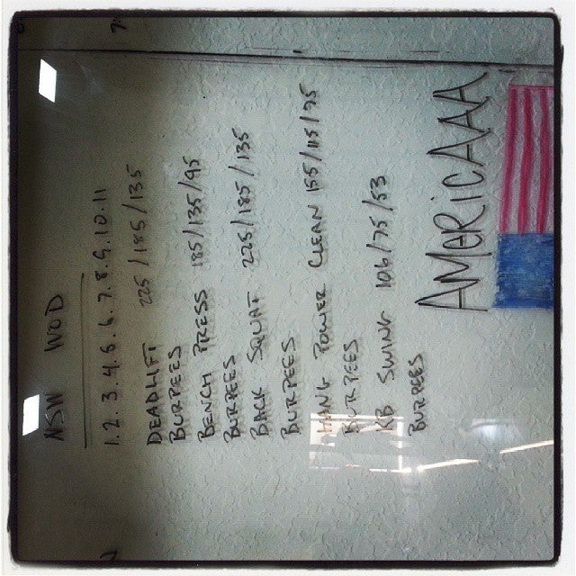 NSW WOD
1.2.3.4.5.6.7.8.9.10.11
DEADLIFT 225/185/135
BURPEES
BENCH PRESS 185/135/95
BURPEES
BACK SQUAT 225/185/135
BURPEES
HANG POWER CLEAN 155/115/75
BURPEES
KB SWING 106/75/53
BURPEES
AMERICAAA